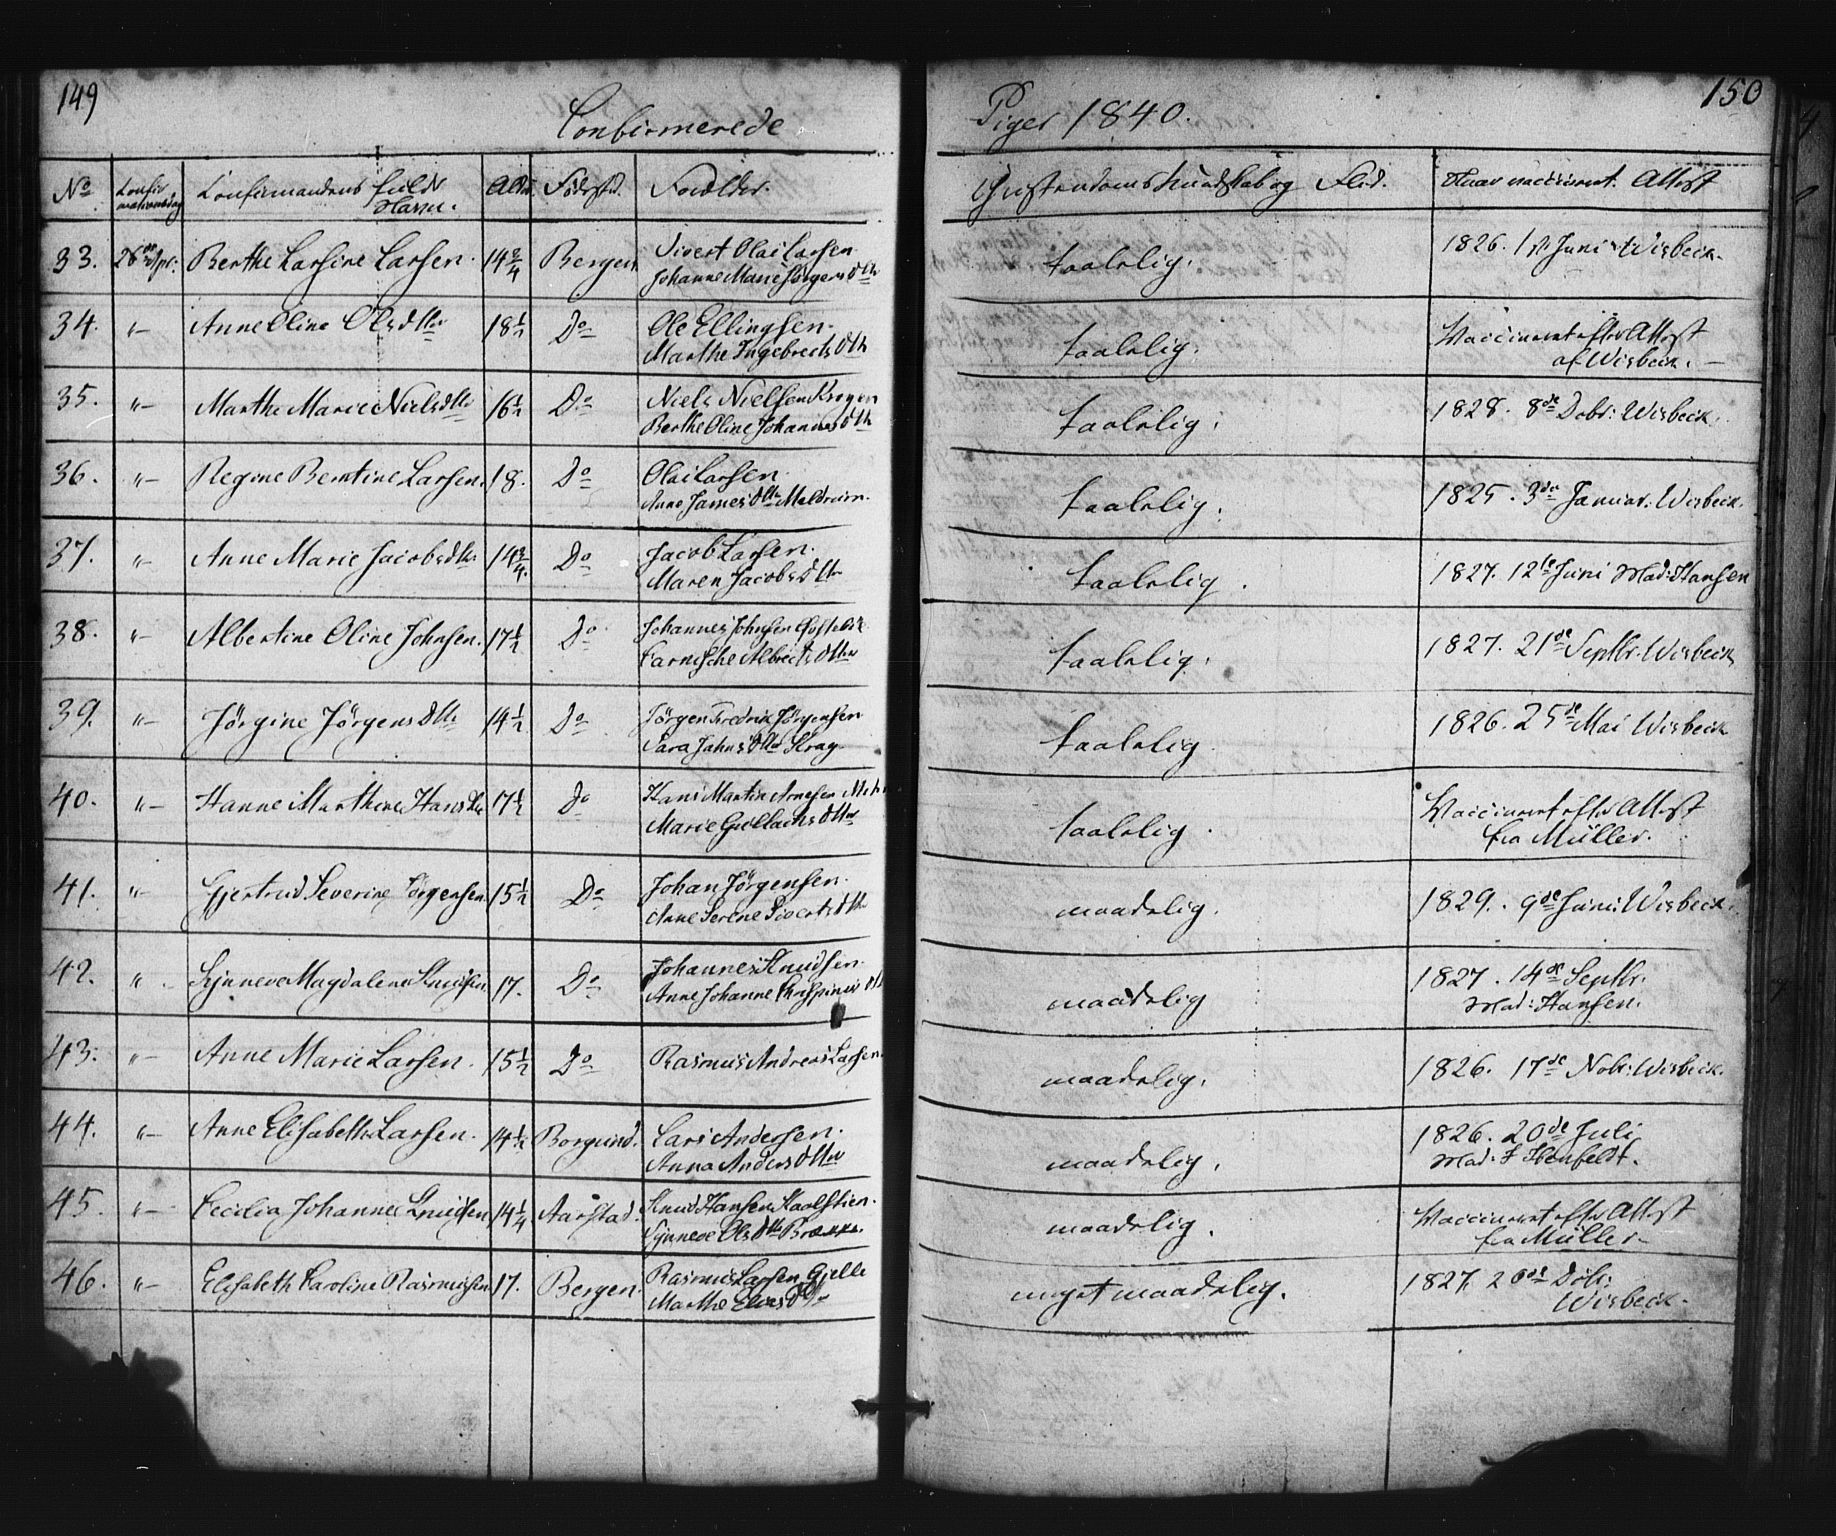 149
Confirmerede
Piger 1840.
150
No Confirmationsdag Confirmandens fulde Navn. Alder Fødested. Forældre. Christendoms Kundskab og Flid. Naar vaccineret. Attest
33. 26de Apr. Berthe Larsine Larsen. 14 3/4 Bergen Sivert Olai Larsen taalelig. 1826. 1st Juni Wisbeck.
Johanne Marie Jørgensdtr
34. "- Anne Oline Olsdtter 18 1/2 Do Ole Ellingsen. taalelig. Vaccineret efter Attest
Marthe Ingebretsdtr af Wisbeck. -
35. "- Marthe Marie Nielsdtr 16 1/2 Do Niels Nielsen Krogen taalelig. 1828. 8de Dcbr: Wisbeck.
Berthe Oline Johannesdtr
36. "- Regine Berntine Larsen. 18. Do Olai Larsen taalelig. 1825. 3de Januar. Wisbeck.
Anne Jamesdtr Meldrum.
37. "- Anne Marie Jacobsdtr. 14 3/4. Do Jacob Larsen. taalelig. 1827. 12te Juni Mad: Hansen
Maren Jacobsdtr
38. "- Albertine Oline Johnsen. 17 1/2 Do Johannes Johnsen taalelig. 1827. 21de Septbr. Wisbeck
Albrectsdtter
39. "- Jørgine Jørgensdtr 14 1/2 Do Jørgen Fredrik Jørgensen taalelig. 1826. 25de Mai Wisbeck
Sara Jahnsdtr Krag.
40. "- Hanne Marthine Hansdtr 17 1/2 Do Hans Martin Arnesen taalelig. Vaccineret efter Attest
Marie Gullachsdtter fra Müller.
41. "- Gjertrud Severine Jørgensen 15 1/2 Do Johan Jørgensen. maadelig. 1829. 9de Juni: Wisbeck.
Anne Serene Sivertsdtr
42. " Synneve Magdalene Knudsen 17. Do Johannes Knudsen. maadelig 1827. 14de Septbr.
Anne Johanne Mad: Hansen.
43. "- Anne Marie Larsen. 15 1/2 Do Rasmus Andreas Larsen. maadelig. 1826. 17de Nobr: Wisbeck.
44. "- Anne Elisabeth Larsen. 14 1/2 Borgund. Lars Andersen. maadelig. 1826. 20de Juli
Anna Andersdtter Mad:
45. "- Cecilia Johanne Knudsen 14 1/4 Aarstad. Knud Hansen maadelig. Vaccineret efter Attest
Synneve Olsdtr fra Müller
46. "- Elisabeth Caroline Rasmusen 17. Bergen. Rasmus Larsen Gjelle meget maadelig. 1827. 20de Dcbr:
Marthe Wisbeck.